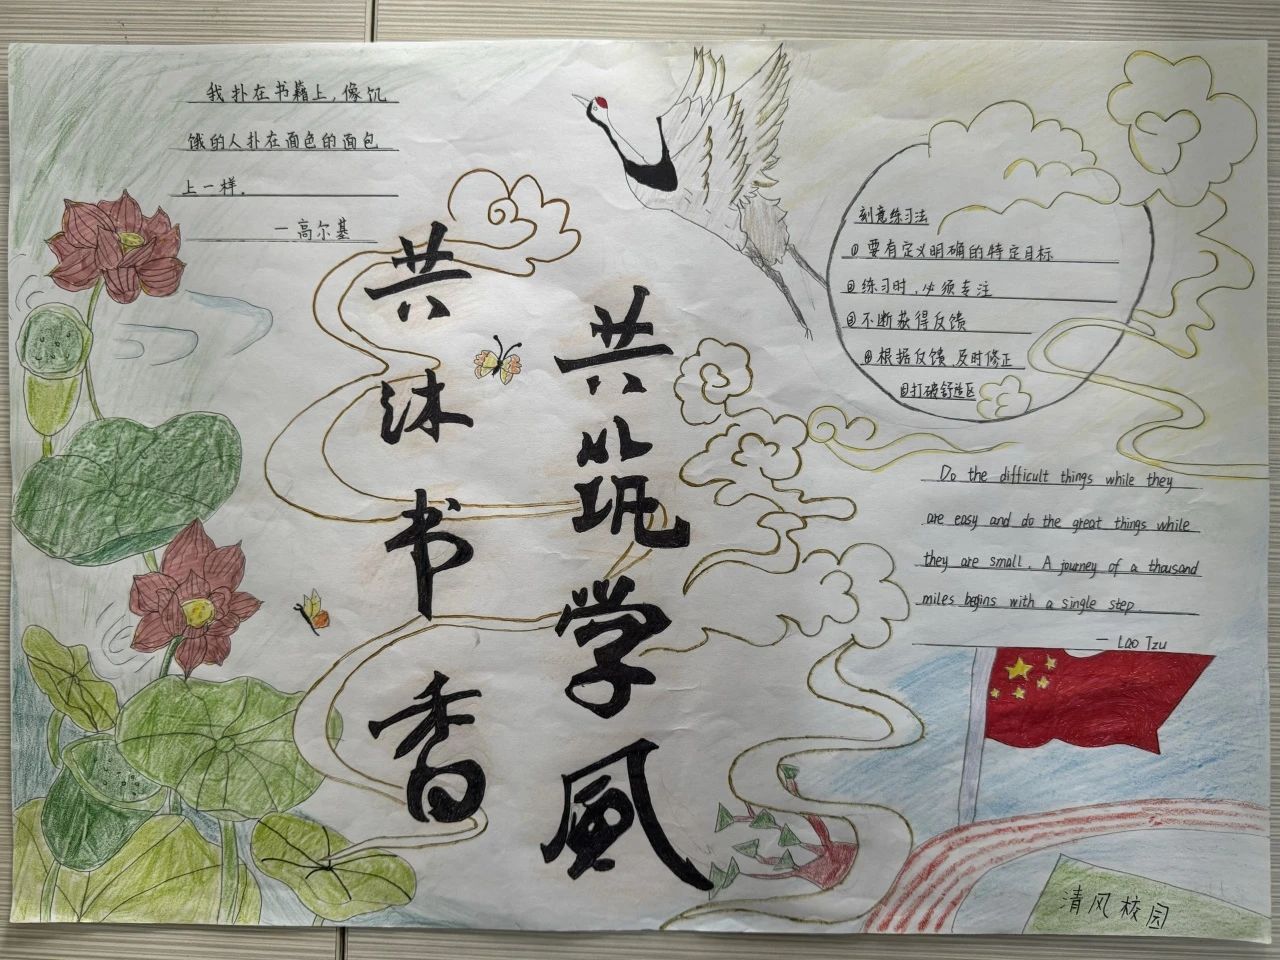 我扑在书籍上，像饥
饿的人扑在面色的面包
上一样。
—高尔基
共沐书香
共筑学風
刻意练习法
①要有定义明确的特定目标
②练习时，必须专注
③不断获得反馈
④根据反馈，及时修正
⑤打破舒适区
Do the difficult things while they
are easy and do the great things while
they are small. A journey of a thousand
miles begins with a single step.
— Lao Tzu
清风校园